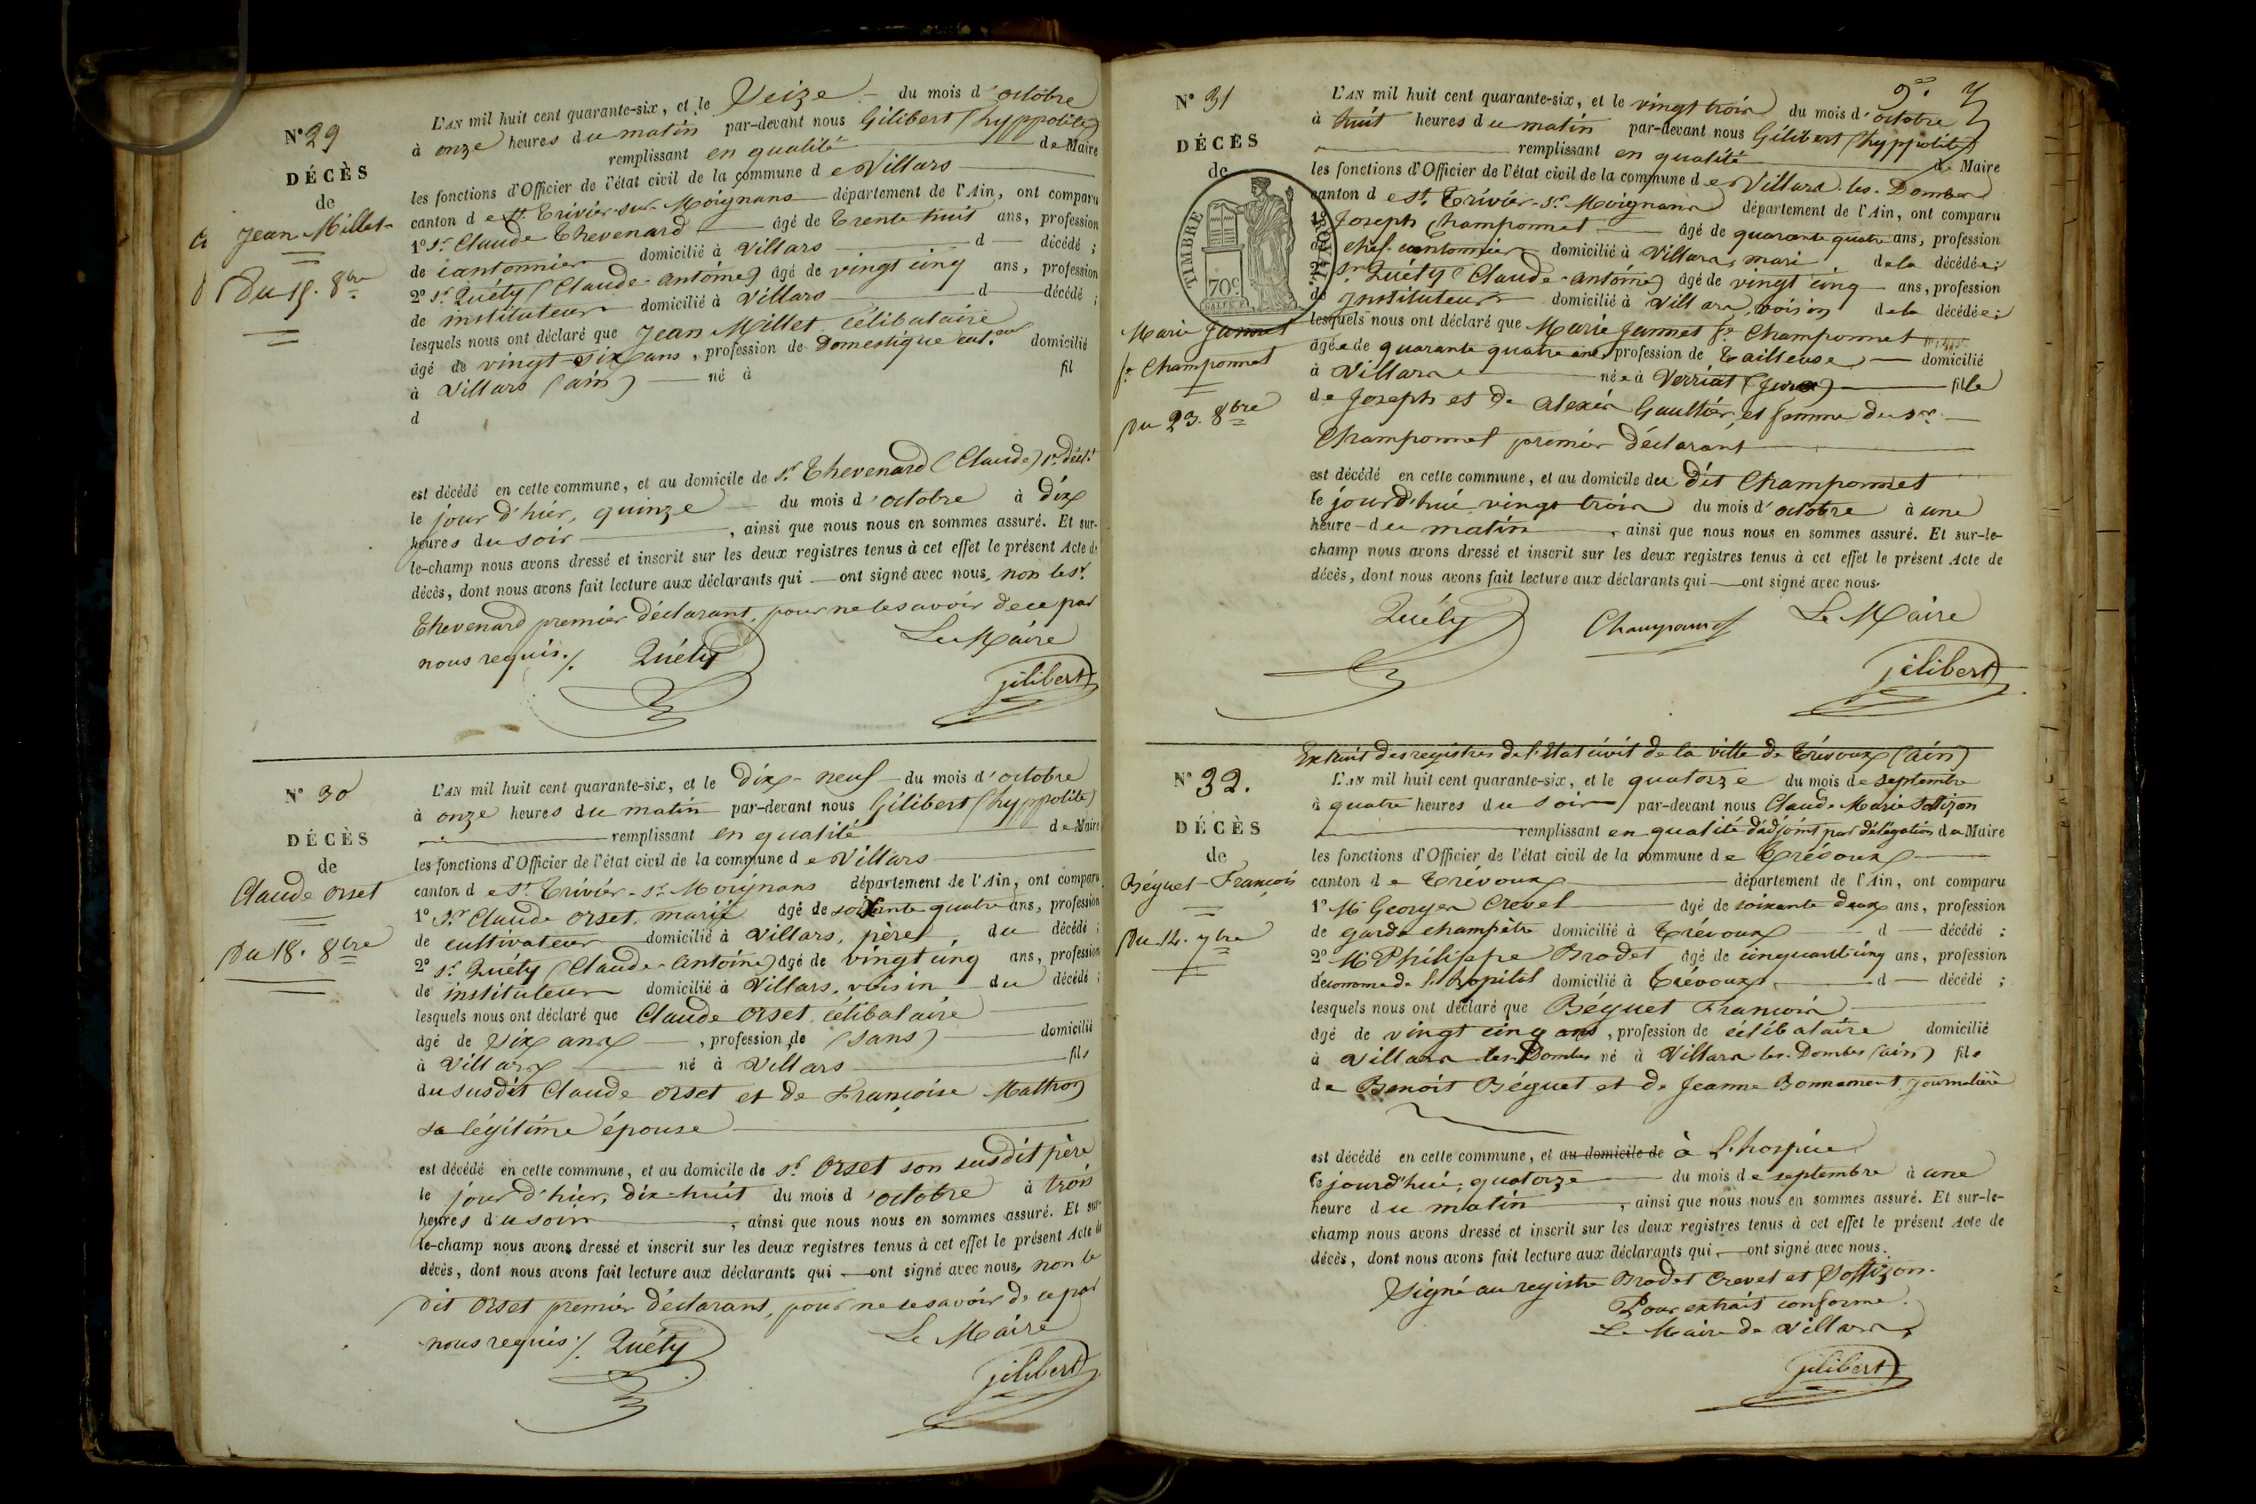 N° 29
DÉCÈS
de
Jean Millet
Du 15. 8bre
L'AN mil huit cent quarante-six, et le Seize du mois d'octobre
à onze heures du matin par-devant nous Gilibert (hyppolite)
remplissant en qualité de Maire
les fonctions d'Officier de l'état civil de la commune de Villars
canton de St. Trivier-sur-Moignans département de l'Ain, ont comparu
1° Sr. Claude Thevenard âgé de trente huit ans, profession
de cantonnier domicilié à Villars d décédé ;
2° Sr. Quély (Claude-Antoine) âgé de vingt cinq ans, profession
de instituteur domicilié à Villars d décédé ;
lesquels nous ont déclaré que Jean Millet célibataire
âgé de vingt-six ans, profession de Domestique domicilié
à Villars (ain) né à fil
d
est décédé en cette commune, et au domicile de Sr. Thevenard (Claude) 1er. déclt.
le jour d'hier, quinze du mois d'octobre à dix
heures du soir, ainsi que nous nous en sommes assuré. Et sur-
le-champ nous avons dressé et inscrit sur les deux registres tenus à cet effet le présent Acte de
décès, dont nous avons fait lecture aux déclarants qui ont signé avec nous, non le Sr.
Thevenard premier déclarant, pour ne le savoir de ce par
nous requis./. Quély Le Maire
gilibert
N° 30
DÉCÈS
de
Claude Orset
Du 18. 8bre
L'AN mil huit cent quarante-six, et le dix-neuf du mois d'octobre
à onze heures du matin par-devant nous Gilibert (hyppolite)
remplissant en qualité de Maire
les fonctions d'Officier de l'état civil de la commune de Villars
canton de St. Trivier-sr. Moignans département de l'Ain, ont comparu
1° Sr. Claude Orset, marié âgé de soixante quatre ans, profession
de cultivateur domicilié à Villars, père du décédé ;
2° Sr. Quély (Claude-Antoine) âgé de vingt cinq ans, profession
de instituteur domicilié à Villars, voisin du décédé ;
lesquels nous ont déclaré que Claude Orset célibataire
âgé de dix ans, profession de (sans) domicilié
à Villars né à Villars fils
du susdit Claude Orset et de Françoise
sa légitime épouse
est décédé en cette commune, et au domicile de Sr. Orset son susdit père
le jour d'hier, dix-huit du mois d'octobre à trois
heures du soir, ainsi que nous nous en sommes assuré. Et sur-
le-champ nous avons dressé et inscrit sur les deux registres tenus à cet effet le présent Acte de
décès, dont nous avons fait lecture aux déclarants qui ont signé avec nous, non le
dit Orset premier déclarant, pour ne le savoir de ce par
nous requis./. Quély Le Maire
gilibert
N° 31
DÉCÈS
de
TIMBRE ROYAL
70c.
Marie Jannet
fe. Champonnet
Du 23. 8bre
L'AN mil huit cent quarante-six, et le vingt trois du mois d'octobre
à huit heures du matin par-devant nous Gilibert (hyppolite)
remplissant en qualité de Maire
les fonctions d'Officier de l'état civil de la commune de Villars-les-Dombes
canton de St. Trivier-sr. Moignans département de l'Ain, ont comparu
1° Joseph Champonnet âgé de quarante quatre ans, profession
de chef cantonnier domicilié à Villars, mari de la décédée ;
2° Sr. Quély (Claude-Antoine) âgé de vingt cinq ans, profession
de Instituteur domicilié à Villars, voisin de la décédée ;
lesquels nous ont déclaré que Marie Jannet fe. Champonnet
âgée de quarante quatre ans, profession de tailleuse domicilié
à Villars née à Verriat (Jura) fille
de Joseph et de Alexia Gaultier, et femme du Sr.
Champonnet premier déclarant
est décédé en cette commune, et au domicile du dit Champonnet
le jourd'hui vingt trois du mois d'octobre à une
heure du matin, ainsi que nous nous en sommes assuré. Et sur-le-
champ nous avons dressé et inscrit sur les deux registres tenus à cet effet le présent Acte de
décès, dont nous avons fait lecture aux déclarants qui ont signé avec nous.
Quély Champonnet Le Maire
gilibert
Extrait des registres de l'Etat civil de la ville de Trévoux (ain)
N° 32.
DÉCÈS
de
Béguet François
Du 14. 7bre
L'AN mil huit cent quarante-six, et le quatorze du mois de septembre
à quatre heures du soir par-devant nous Claude Marie
remplissant en qualité d'adjoint par délégation du Maire
les fonctions d'Officier de l'état civil de la commune de Trévoux
canton de Trévoux département de l'Ain, ont comparu
1° Mr. Georges Crevel âgé de soixante deux ans, profession
de garde champêtre domicilié à Trévoux d décédé ;
2° Mr. Philippe Brodet âgé de cinquante cinq ans, profession
d'économe de l'hopital domicilié à Trévoux d décédé ;
lesquels nous ont déclaré que Béguet François
âgé de vingt cinq ans, profession de célibataire domicilié
à Villars les Dombes né à Villars-les-Dombes (ain) fils
de Benoit Béguet et de Jeanne Bonnament journalière
est décédé en cette commune, et au domicile de à L'hospice
le jourd'hui, quatorze du mois de septembre à une
heure du matin, ainsi que nous nous en sommes assuré. Et sur-le-
champ nous avons dressé et inscrit sur les deux registres tenus à cet effet le présent Acte de
décès, dont nous avons fait lecture aux déclarants qui ont signé avec nous.
Signé au registre Brodet Crevel et
Pour extrait conforme.
Le Maire de Villars,
gilibert